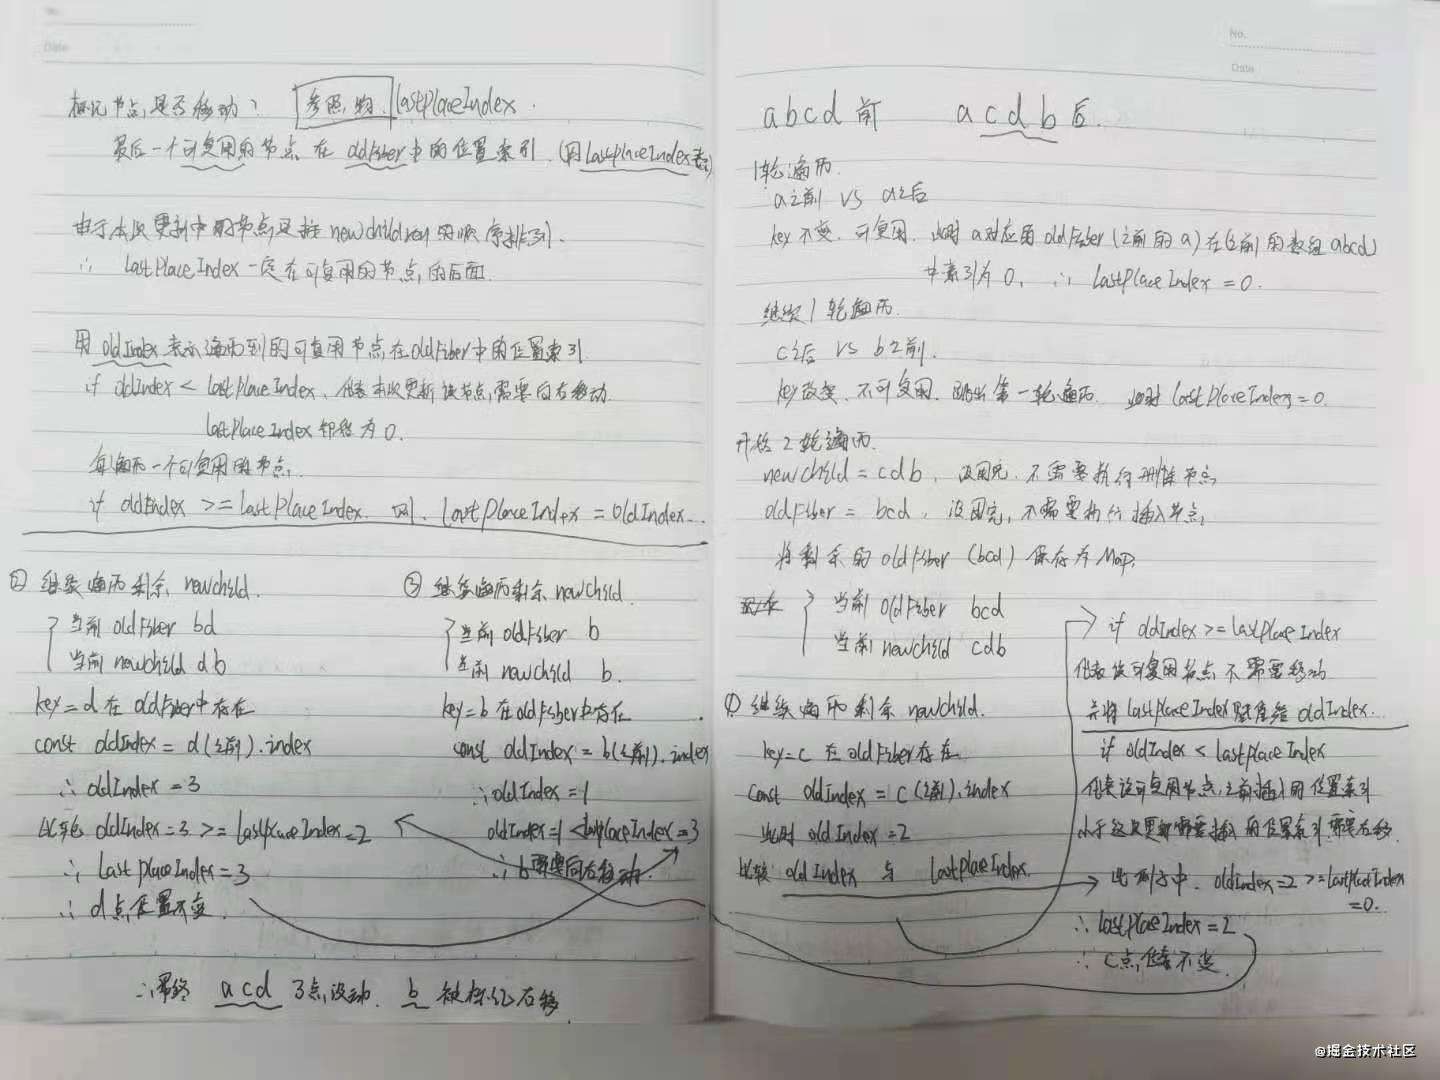 No.
Date
标记节点是否移动? 参照物 lastPlaceIndex.
最后一个可复用的节点在 oldFiber 中的位置索引.(用 lastPlaceIndex 表示)
由于本次更新中的节点是按 newchildren 的顺序排列.
∴ lastPlaceIndex 一定在可复用的节点的后面.
用 oldIndex 表示遍历到的可复用节点在 oldFiber 中的位置索引.
if oldIndex < lastPlaceIndex、代表本次更新该节点需要向右移动.
lastPlaceIndex 初始为 0.
每遍历一个可复用的节点.
if oldIndex >= lastPlaceIndex. 则. lastPlaceIndex = oldIndex..
② 继续遍历剩余 newchild.
当前 oldFiber bd
当前 newchild db
key=d 在 oldFiber 中存在
const oldIndex = d(之前).index
∴ oldIndex = 3
比较 oldIndex=3 >= lastPlaceIndex=2
∴ lastPlaceIndex = 3
∴ d点位置不变.
③ 继续遍历剩余 newchild.
当前 oldFiber b
当前 newchild b.
key=b 在 oldFiber 中存在
const oldIndex = b(之前).index
∴ oldIndex = 1
oldIndex=1 < lastPlaceIndex=3
∴ b 需要向右移动.
∴ 最终 acd 3点没动. b 被标记右移.
No.
Date
abcd 前 acdb 后.
1轮遍历.
a之前 VS a之后
key 不变、可复用. 此时 a 对应的 oldFiber (之前的a) 在(之前的数组 abcd)
中索引为 0, ∴ lastPlaceIndex = 0.
继续 1 轮遍历.
c之后 VS b之前.
key改变、不可复用. 跳出第一轮遍历. 此时 lastPlaceIndex = 0.
开始 2 轮遍历.
newchild = cdb、没用完、不需要执行删除节点
oldFiber = bcd、没用完, 不需要执行插入节点,
将剩余的 oldFiber (bcd) 保存为 Map,
当前 oldFiber bcd
当前 newchild cdb
① 继续遍历剩余 newchild.
key=c 在 oldFiber 存在.
const oldIndex = c(之前).index
此时 oldIndex = 2
比较 oldIndex 与 lastPlaceIndex.
if oldIndex >= lastPlaceIndex
代表该可复用节点不需要移动
并将 lastPlaceIndex 赋值给 oldIndex.
if oldIndex < lastPlaceIndex
代表该可复用节点之前插入的位置索引
小于这次更新需要插入的位置索引、需要右移.
此例子中. oldIndex=2 >= lastPlaceIndex
=0.
∴ lastPlaceIndex = 2
∴ c点位置不变.
@掘金技术社区